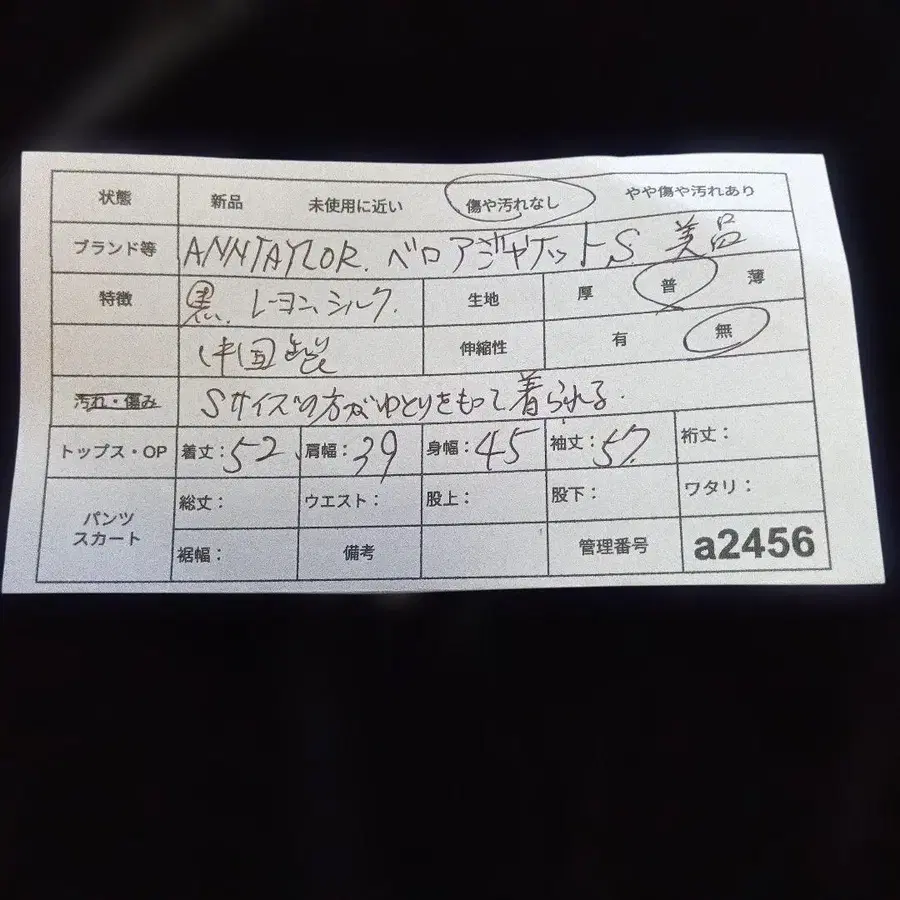 状態 新品 未使用に近い 傷や汚れなし やや傷や汚れあり
ブランド等 ANNTAYLOR. ベロアジャケットS 美品
特徴 黒. レーヨン、シルク. 生地 厚 普 薄
中国製 伸縮性 有 無
汚れ・傷み Sサイズの方がゆとりをもって着られる.
トップス・OP 着丈:52、肩幅:39 身幅:45 袖丈:57. 裄丈:
パンツ スカート 総丈: ウエスト: 股上: 股下: ワタリ:
裾幅: 備考 管理番号 a2456